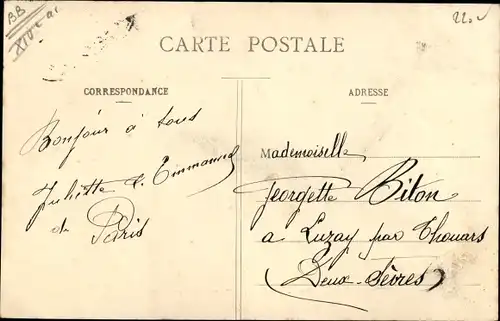 BB
220
CARTE POSTALE
CORRESPONDANCE
ADRESSE
Bonjour à tous
Juliette & Emmanuel
de Paris
Mademoiselle
Georgette Biton
a Luzay par Thouars
(Deux-Sèvres)